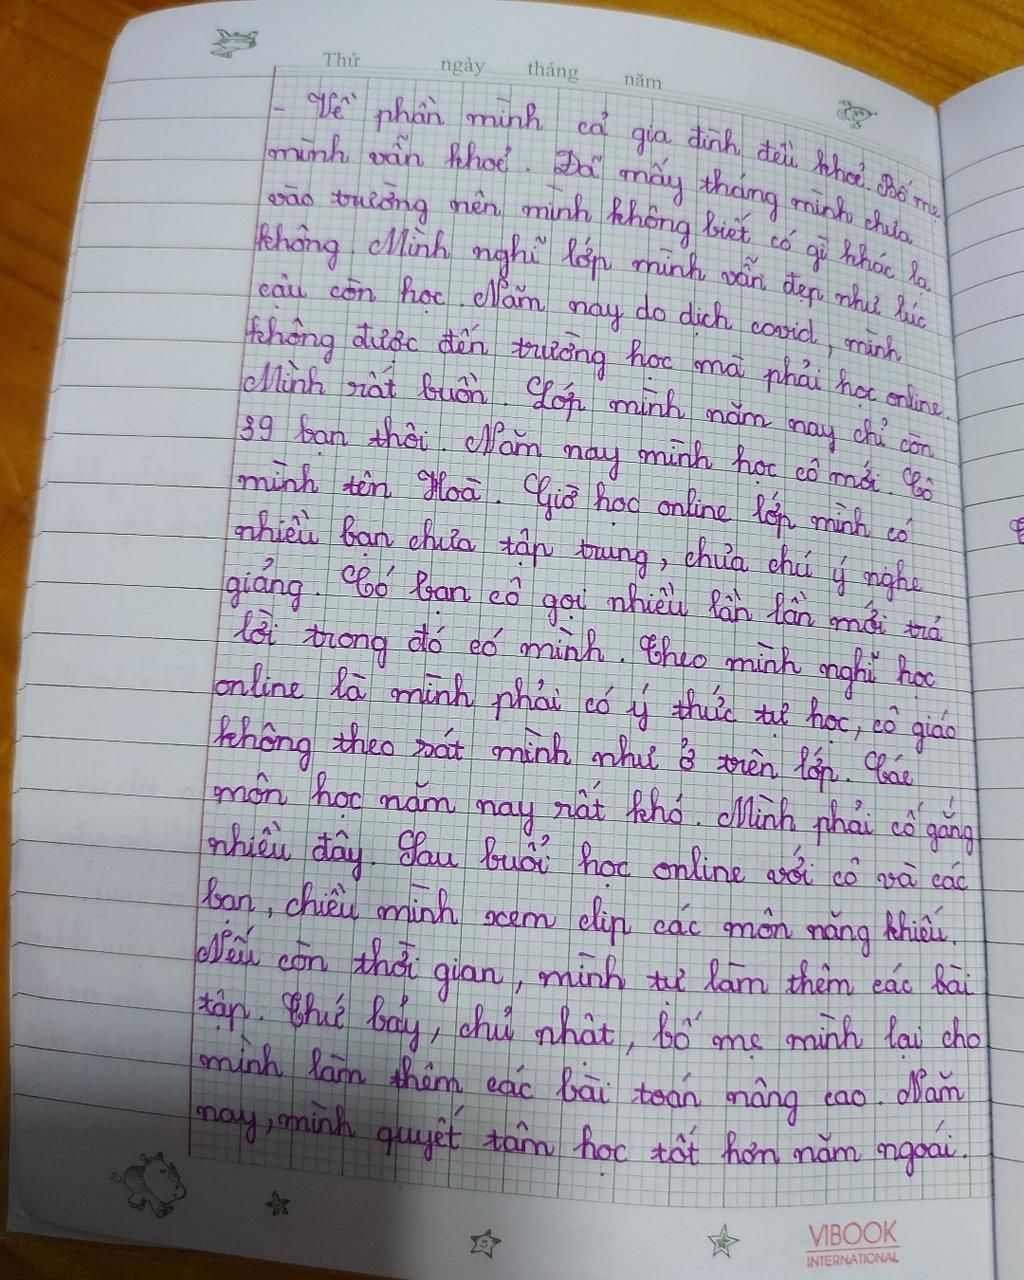 Thứ ngày tháng năm
- Về phần mình cả gia đình đều khoẻ. Bố mẹ
mình vẫn khoẻ. Đã mấy tháng mình chưa
vào trường nên mình không biết có gì khác lạ
không. Mình nghĩ lớp mình vẫn đẹp như lúc
cậu còn học. Năm nay do dịch covid, mình
không được đến trường học mà phải học online.
Mình rất buồn. Lớp mình năm nay chỉ còn
39 bạn thôi. Năm nay mình học cô mới. Cô
mình tên Hoà. Giờ học online lớp mình có
nhiều bạn chưa tập trung, chưa chú ý nghe
giảng. Có bạn cô gọi nhiều lần lần mới trả
lời trong đó có mình. Theo mình nghĩ học
online là mình phải có ý thức tự học, cô giáo
không theo sát mình như ở trên lớp. Các
môn học năm nay rất khó. Mình phải cố gắng
nhiều đây. Sau buổi học online với cô và các
bạn, chiều mình xem clip các môn năng khiếu.
Nếu còn thời gian, mình tự làm thêm các bài
tập. Thứ bảy, chủ nhật, bố mẹ mình lại cho
mình làm thêm các bài toán nâng cao. Năm
nay, mình quyết tâm học tốt hơn năm ngoái.
VIBOOK
INTERNATIONAL